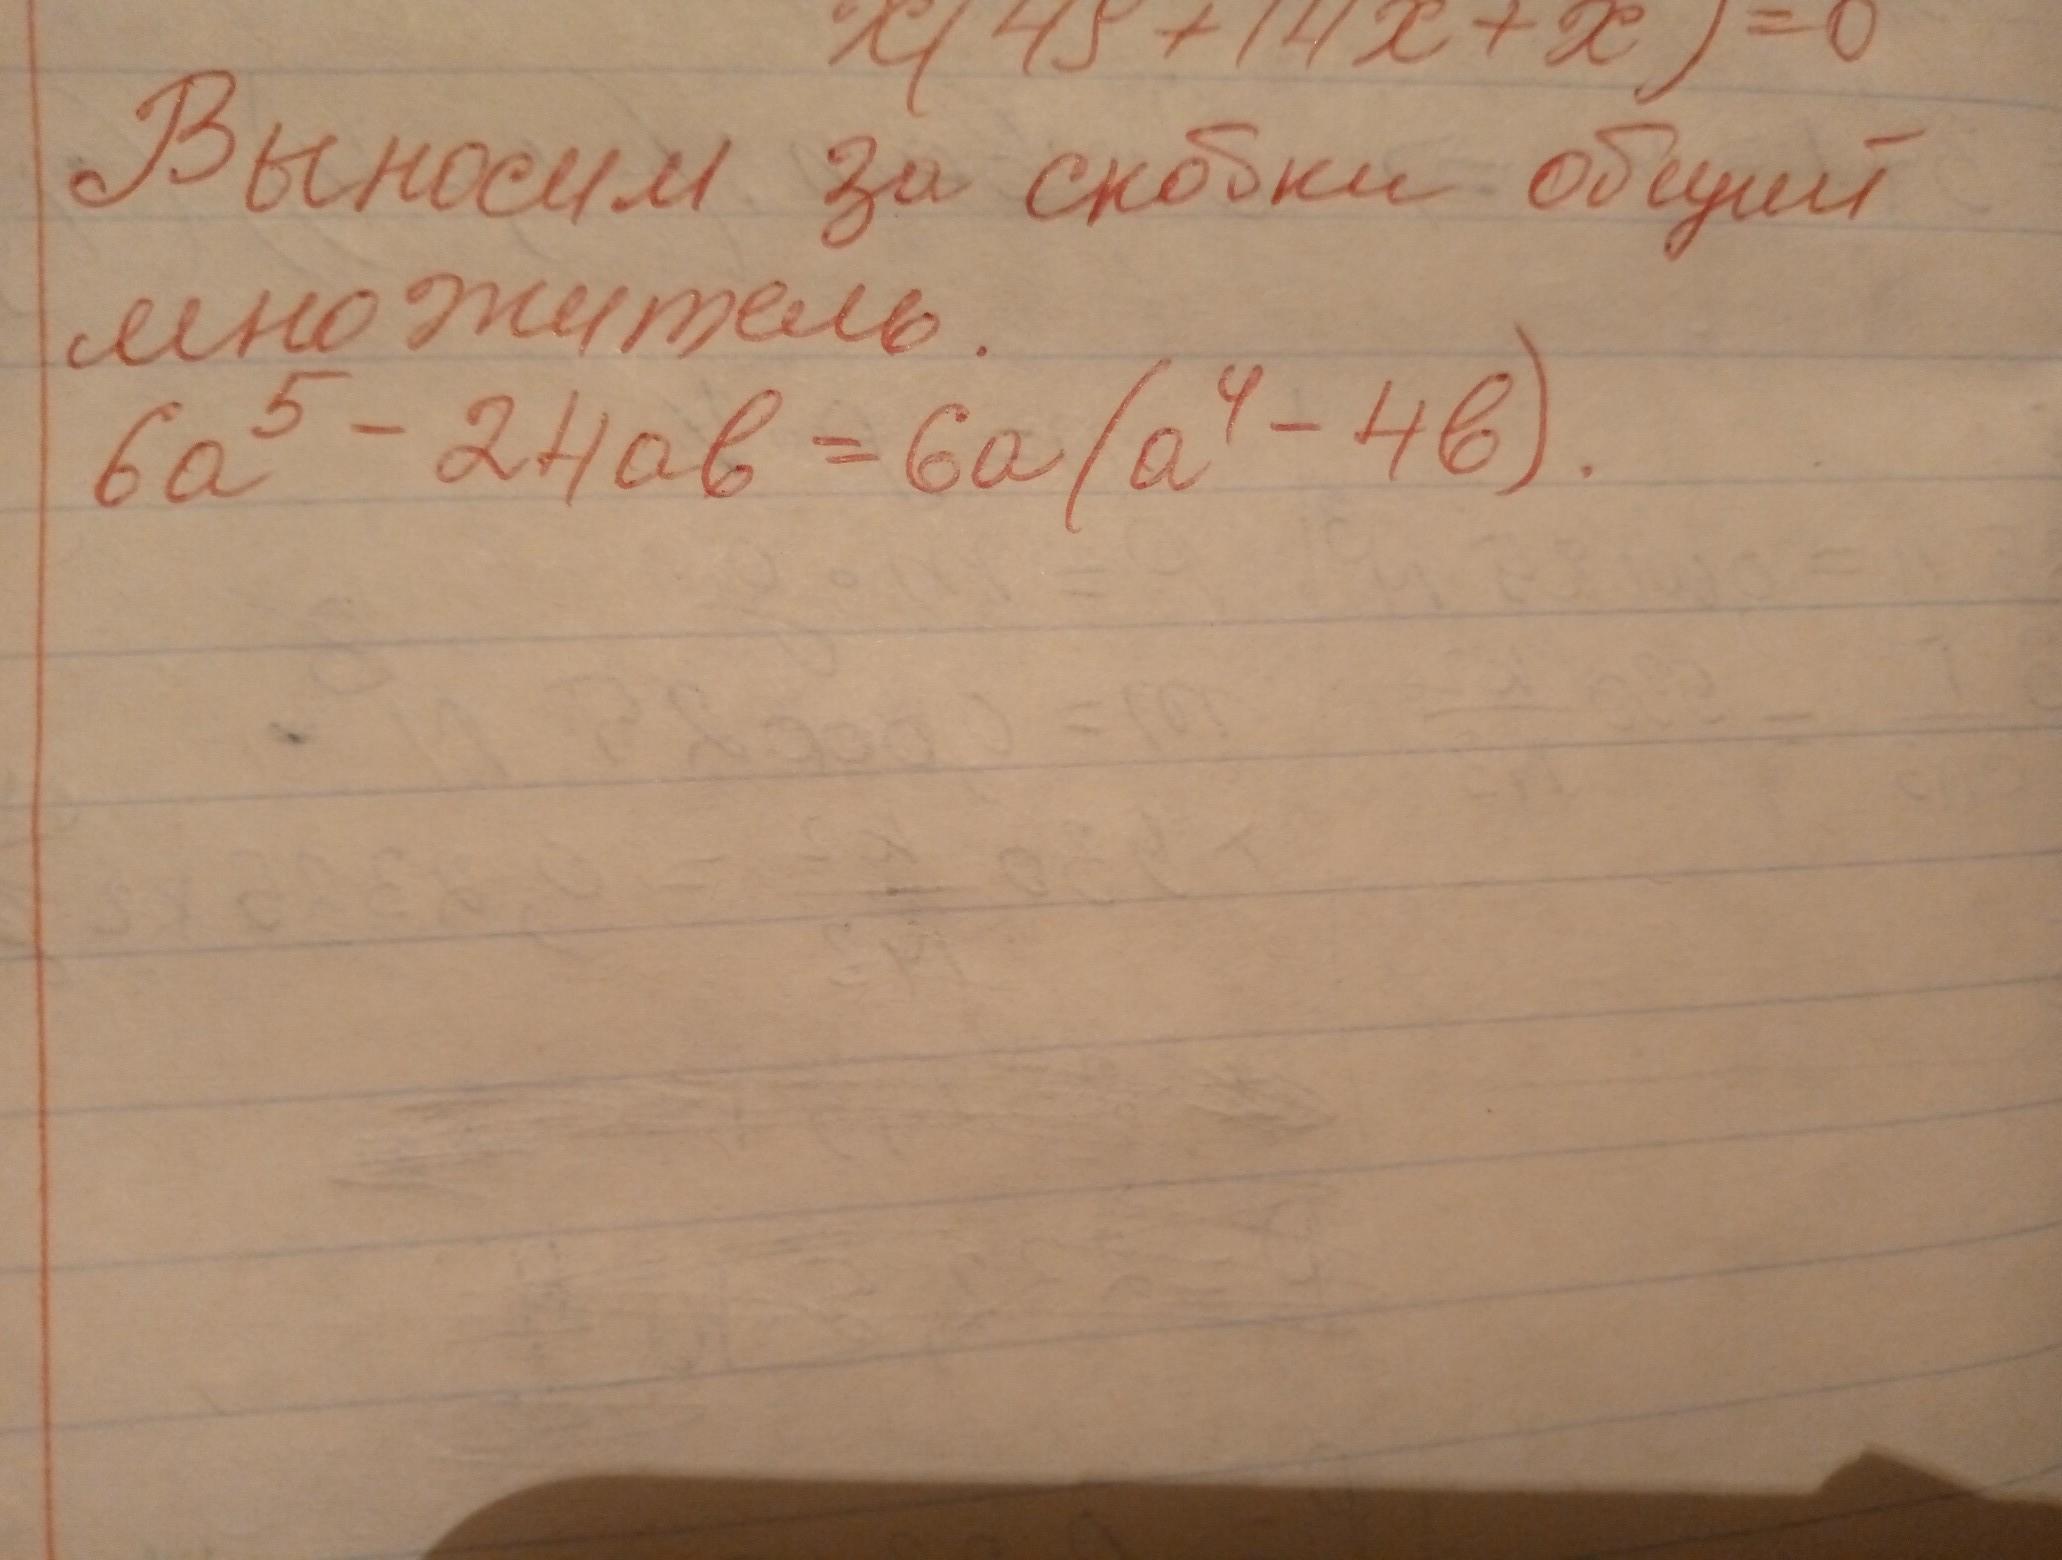 x(49+14x+x)=0
Выносим за скобки общий
множитель.
6a⁵ - 24ab = 6a(a⁴ - 4b).